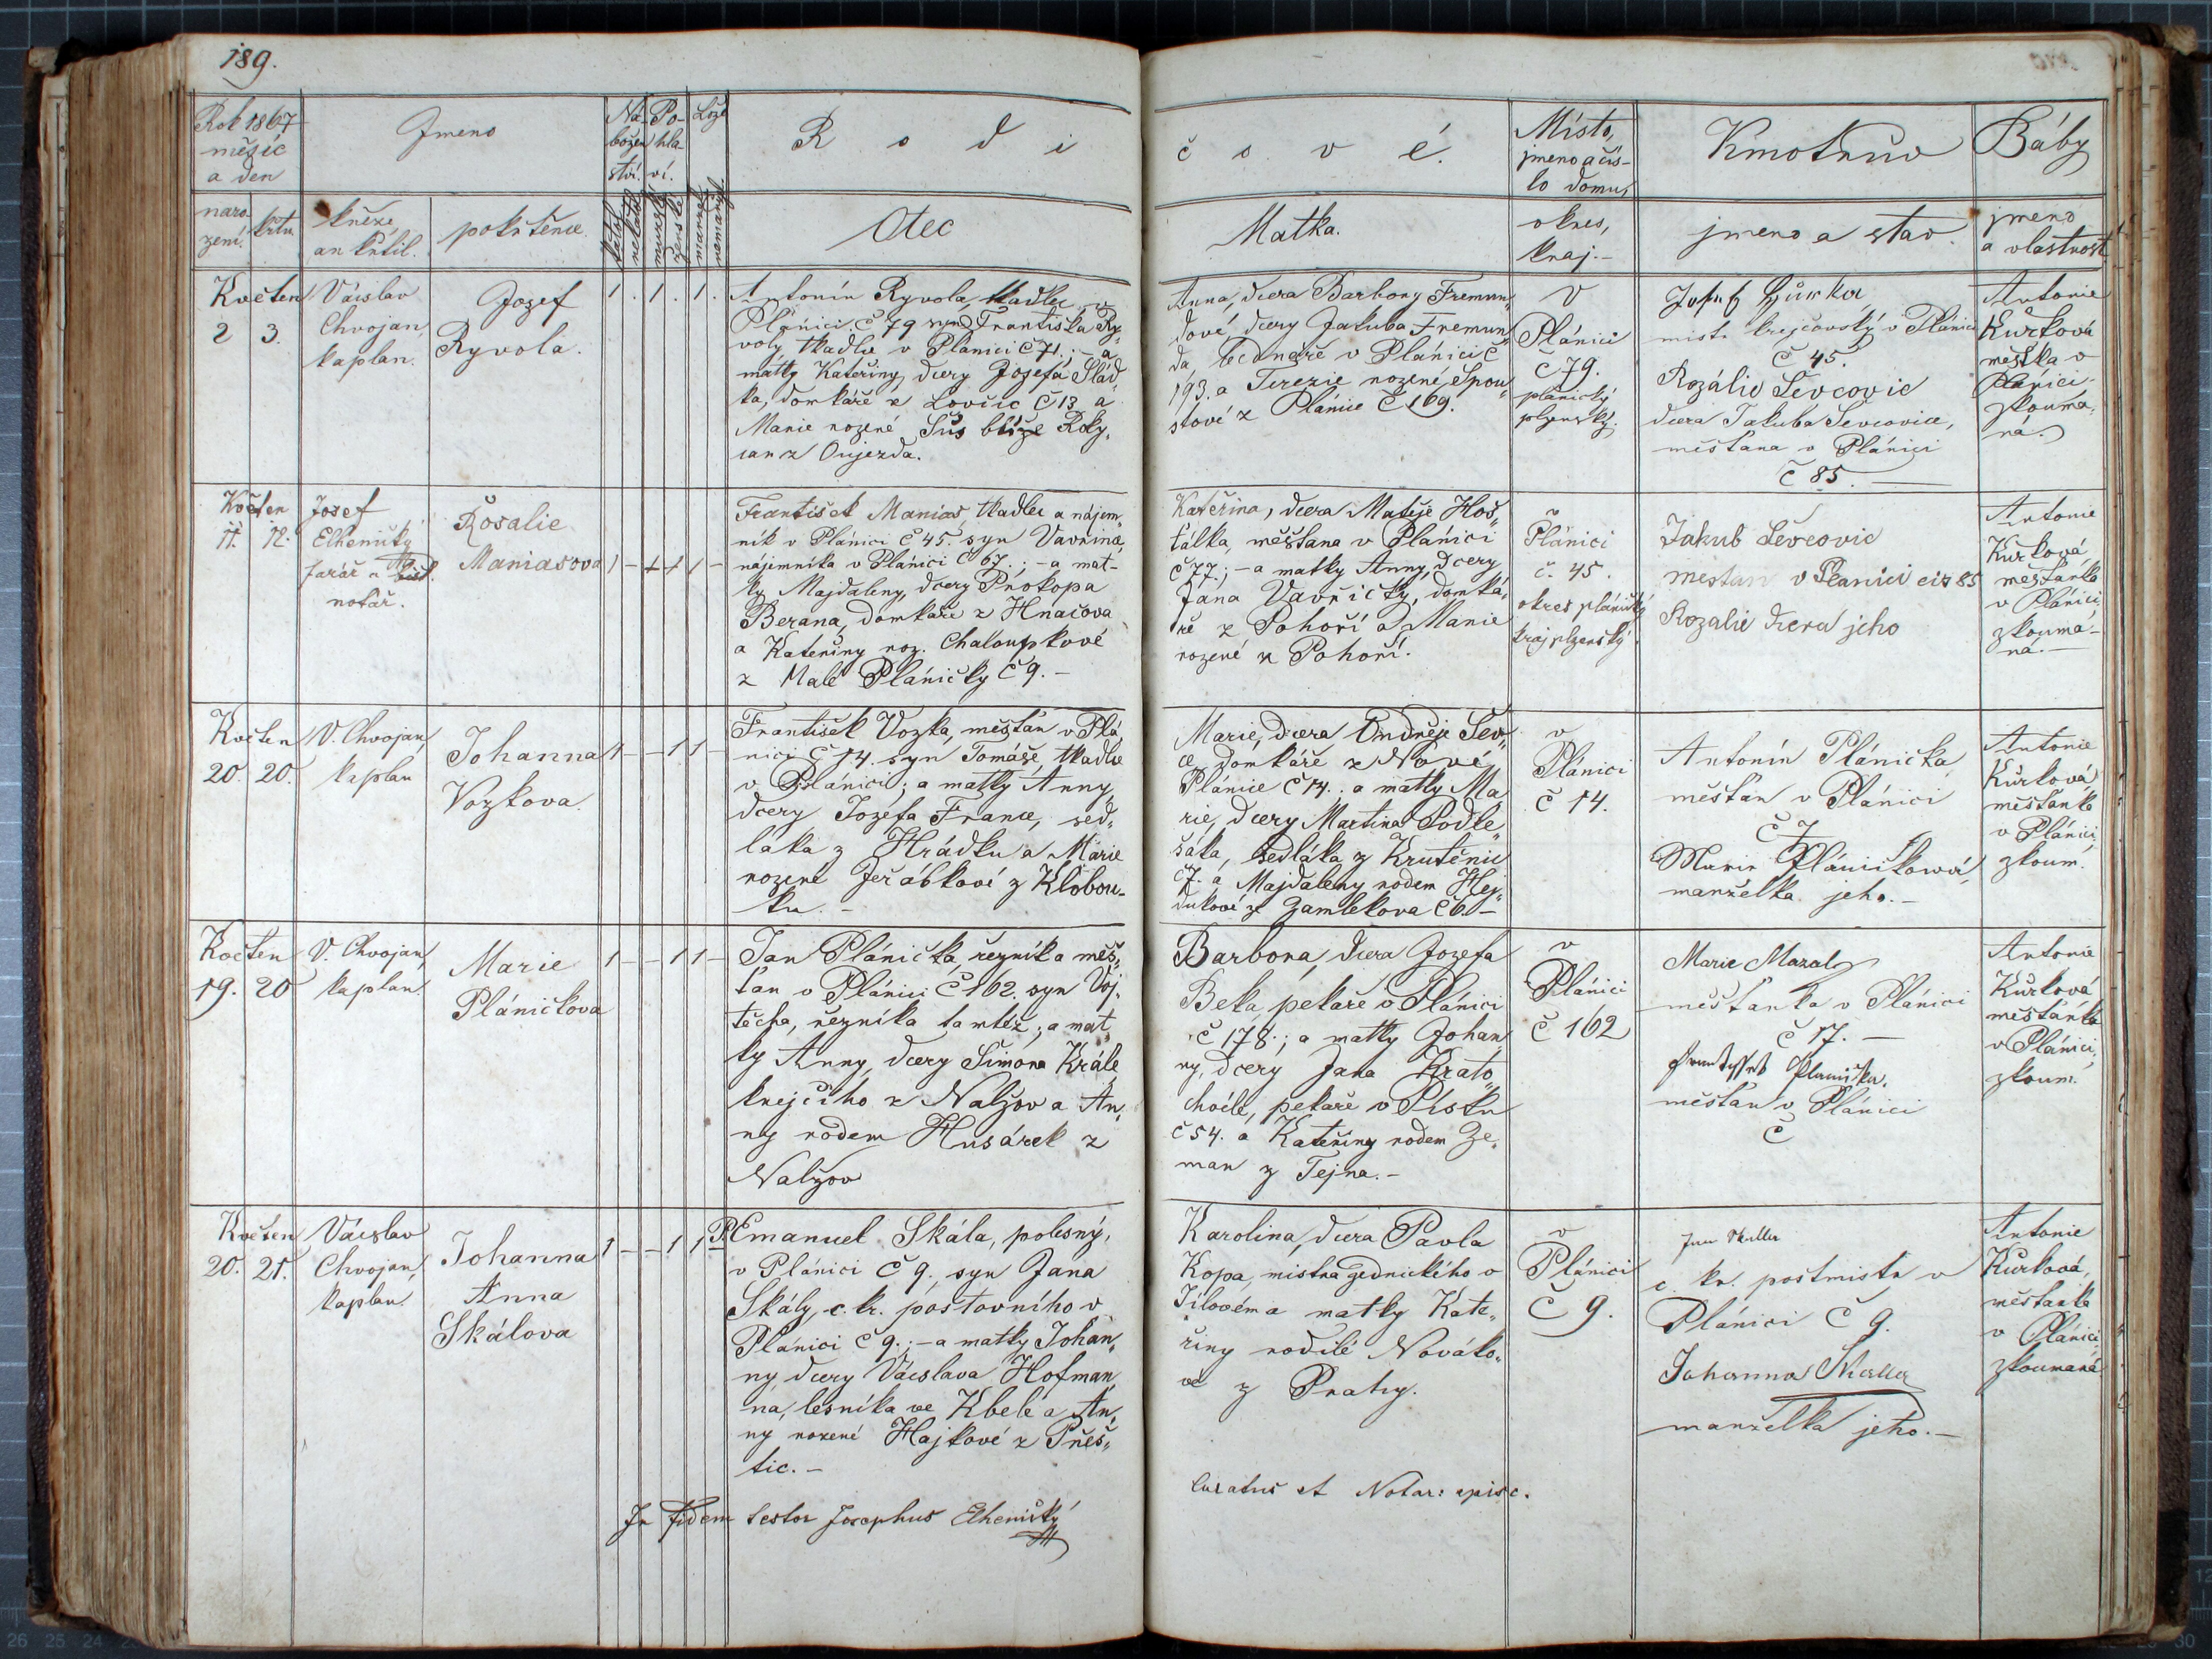 189.
Rok 1867
měsíc
a den
Jmeno
Ná-
božen
stvi.
Po-
hla-
ví.
Lože
R o d i
č o v é.
Místo,
jmeno a čís-
lo domu,
Kmotrův
Báby
naro
zení.
křtu
kněze,
an křtil.
pokřtěnce.
Otec
Matka.
okres,
kraj.-
jmeno a stav.
jmeno
a vlastnost
Květen
2 3.
Václav
Chvojan,
kaplan.
Jozef
Ryvola.
1. 1. 1.
Antonín Ryvola, tkadlec v
Plánici č 79 syn Františka Ry„
voly tkadlce v Plánici č 71.; - a
matky Kateřiny, dcery Josefa Slád„
ka, domkáře z Lovčic č 13 a
Marie rozené Šůs blíže Roky„
can z Oujezda.
Anna, dcera Barbory Fremun„
dové, dcery Jakuba Fremun„
da, bednáře v Plánici č
193. a Terezie rozené Spou„
stové z Plánice č 169.
V
Plánici
č 79.
plánický
plzenský.
Josef Kůrka
mistr krejčovský v Plánici
č 45.
Rozálie Ševcovic
dcera Jakuba Ševcovice,
mešťana v Plánici
č 85.
Antonie
Kůrková
mešťka v
Plánici
zkouma„
ná.
Květen
11. 12.
Josef
Elhenický
farář a
notář.
Rosalie
Maniasova
1 - - 1 1 -
František Manias, tkadlec a nájem„
ník v Plánici č 45. syn Vavřina,
nájemníka v Plánici č 67.; - a mat-
ky Majdaleny, dcery Prokopa
Berana, domkáře z Hnačova
a Kateřiny roz. Chaloupkové
z Malé Pláničky č 9. -
Kateřina, dcera Matěje Hoš„
tálka, měšťana v Plánici
č 77.; - a matky Anny, dcery
Jana Vavřičky, domká„
ře z Pohoří a Marie
rozené z Pohoří.
v
Plánici
č. 45.
okres plánický
kraj plzenský.
Jakub Ševcovic
mestan v Planici čis 85
Rozalie dcera jeho
Antonie
Kůrková,
mešťanka
v Plánici,
zkouma-
ná. -
Květen
20. 20.
V. Chvojan,
kaplan
Johanna
Vozkova.
1 - - 1 1 -
František Vozka, mešťan v Plá„
nici č 14. syn Tomáše, tkadlce
v Plánici; a matky Anny,
dcery Jozefa France, sed„
láka z Hrádku a Marie
rozené Jeřábkové z Klobou-
ku. -
Marie, dcera Ondřeje Šev„
ce, domkáře z Nové
Plánice č 14. a matky Ma
rie, dcery Martina Podle„
šáka, sedláka z Krutěnic
č 7. a Majdaleny rodem Hej„
dukové z Zamlekova č 6. -
v
Plánici
č 14.
Antonín Plánička
měšťan v Plánici
č 7
Marie Pláničková,
manželka jeho. -
Antonie
Kůrková,
měšťanka
v Plánici,
zkoum.
Květen
19. 20
V. Chvojan,
kaplan.
Marie
Pláničkova
1 - - 1 1 -
Jan Plánička, řezník a měš„
ťan v Plánici č 162. syn Voj„
těcha, řezníka tamtéž; a mat„
ky Anny, dcery Šimona Krále
krejčího z Nalžov a An„
ny rodem Husárek z
Nalžov
Barbora, dcera Jozefa
Beka, pekaře v Plánici
č 178.; a matky Johan
ny, dcery Jana Krato„
chvíle, pekaře v Písku
č 54. a Kateřiny rodem Ze„
man z Tejna. -
v
Plánici
č 162
Marie Mazal
měšťanka v Plánici
č 17. -
Planička.
měšťan v Plánici
č
Antonie
Kůrková
měšťanka
v Plánici,
zkoum.
Květen
20. 21.
Václav
Chvojan,
kaplan.
Johanna
Anna
Skálova
1 - - 1 1
Emanuel Skála, polesný,
v Plánici č 9., syn Jana
Skály, c. kr. poštovního v
Plánici č 9.; - a matky Johan„
ny dcery Václava Hofman„
na, lesníka ve Kbele a An„
ny rozené Hajkové z Přeš„
tic. -
Karolina, dcera Pavla
Kopa, mistra zednického v
Jílovém a matky Kate„
řiny rodilé Nováko„
vé z Prahy.
v
Plánici
č 9.
Jan Skalla
c. kr. poštmistr v
Plánici č 9.
Johanna Skalla
manželka jeho. -
Antonie
Kůrková,
měšťanka
v Plánici
zkoumaná
In fidem testor Josephus Elhenický
Curatus et Notar: episc.